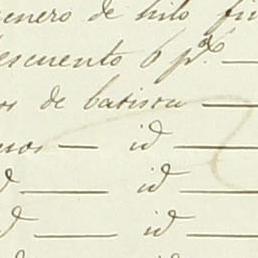 enero de hilo fin
escuento 6 p%
os de batista
uos — id —
d — id —
d — id —